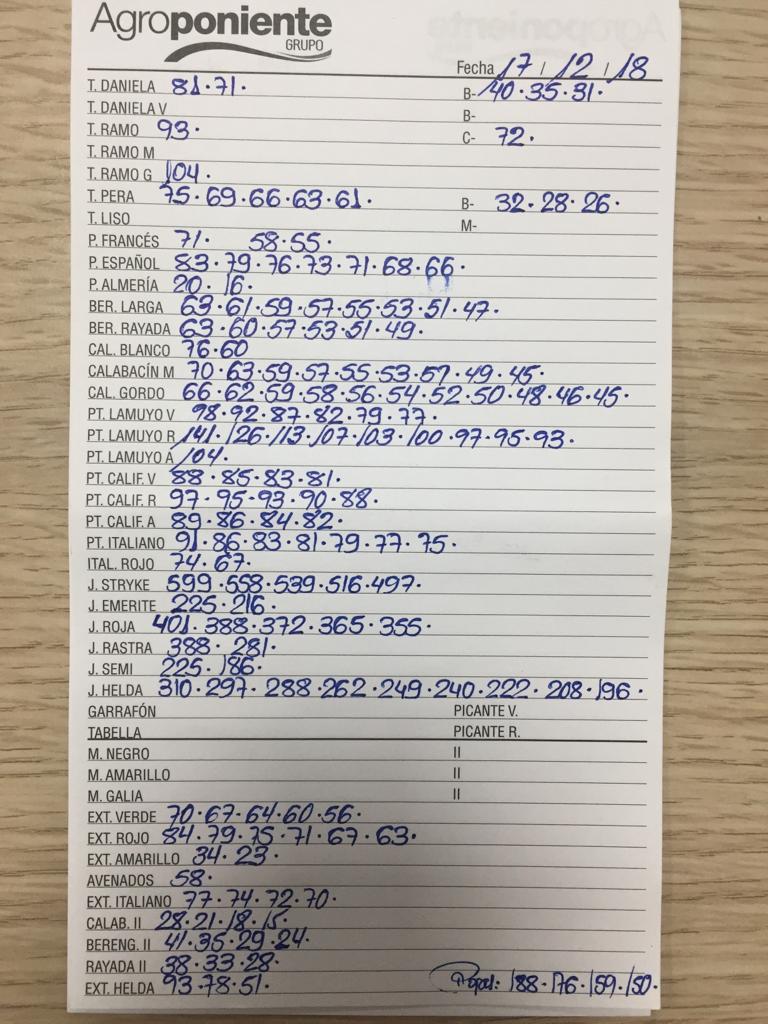 Agroponiente
GRUPO
Fecha 17 / 12 / 18
T. DANIELA 81·71· B- 40·35·31·
T. DANELA V B-
T. RAMO 93· C- 72·
T. RAMO M
T. RAMO G 104·
T. PERA 75·69·66·63·61· B- 32·28·26·
T. LISO M-
P. FRANCÉS 71· 58·55·
P. ESPAÑOL 83·79·76·73·71·68·66·
P. ALMERÍA 20·16·
BER. LARGA 63·61·59·57·55·53·51·47·
BER. RAYADA 63·60·57·53·51·49·
CAL. BLANCO 76·60
CALABACÍN M 70·63·59·57·55·53·51·49·45·
CAL. GORDO 66·62·59·58·56·54·52·50·48·46·45·
PT. LAMUYO V 98·92·87·82·79·77·
PT. LAMUYO R 141·126·113·107·103·100·97·95·93·
PT. LAMUYO A 104·
PT. CALIF. V 88·85·83·81·
PT. CALIF. R 97·95·93·90·88·
PT. CALIF. A 89·86·84·82·
PT. ITALIANO 91·86·83·81·79·77·75·
ITAL. ROJO 74·67·
J. STRYKE 599·558·539·516·497·
J. EMERITE 225·216·
J. ROJA 401·388·372·365·355·
J. RASTRA 388·281·
J. SEMI 225·186·
J. HELDA 310·297·288·262·249·240·222·208·196·
GARRAFÓN PICANTE V.
TABELLA PICANTE R.
M. NEGRO II
M. AMARILLO II
M. GALIA II
EXT. VERDE 70·67·64·60·56·
EXT. ROJO 84·79·75·71·67·63·
EXT. AMARILLO 34·23·
AVENADOS 58·
EXT. ITALIANO 77·74·72·70·
CALAB. II 28·21·18·15·
BERENG. II 41·35·29·24·
RAYADA II 38·33·28·
EXT. HELDA 93·78·51· Papel: 188·176·159·150·